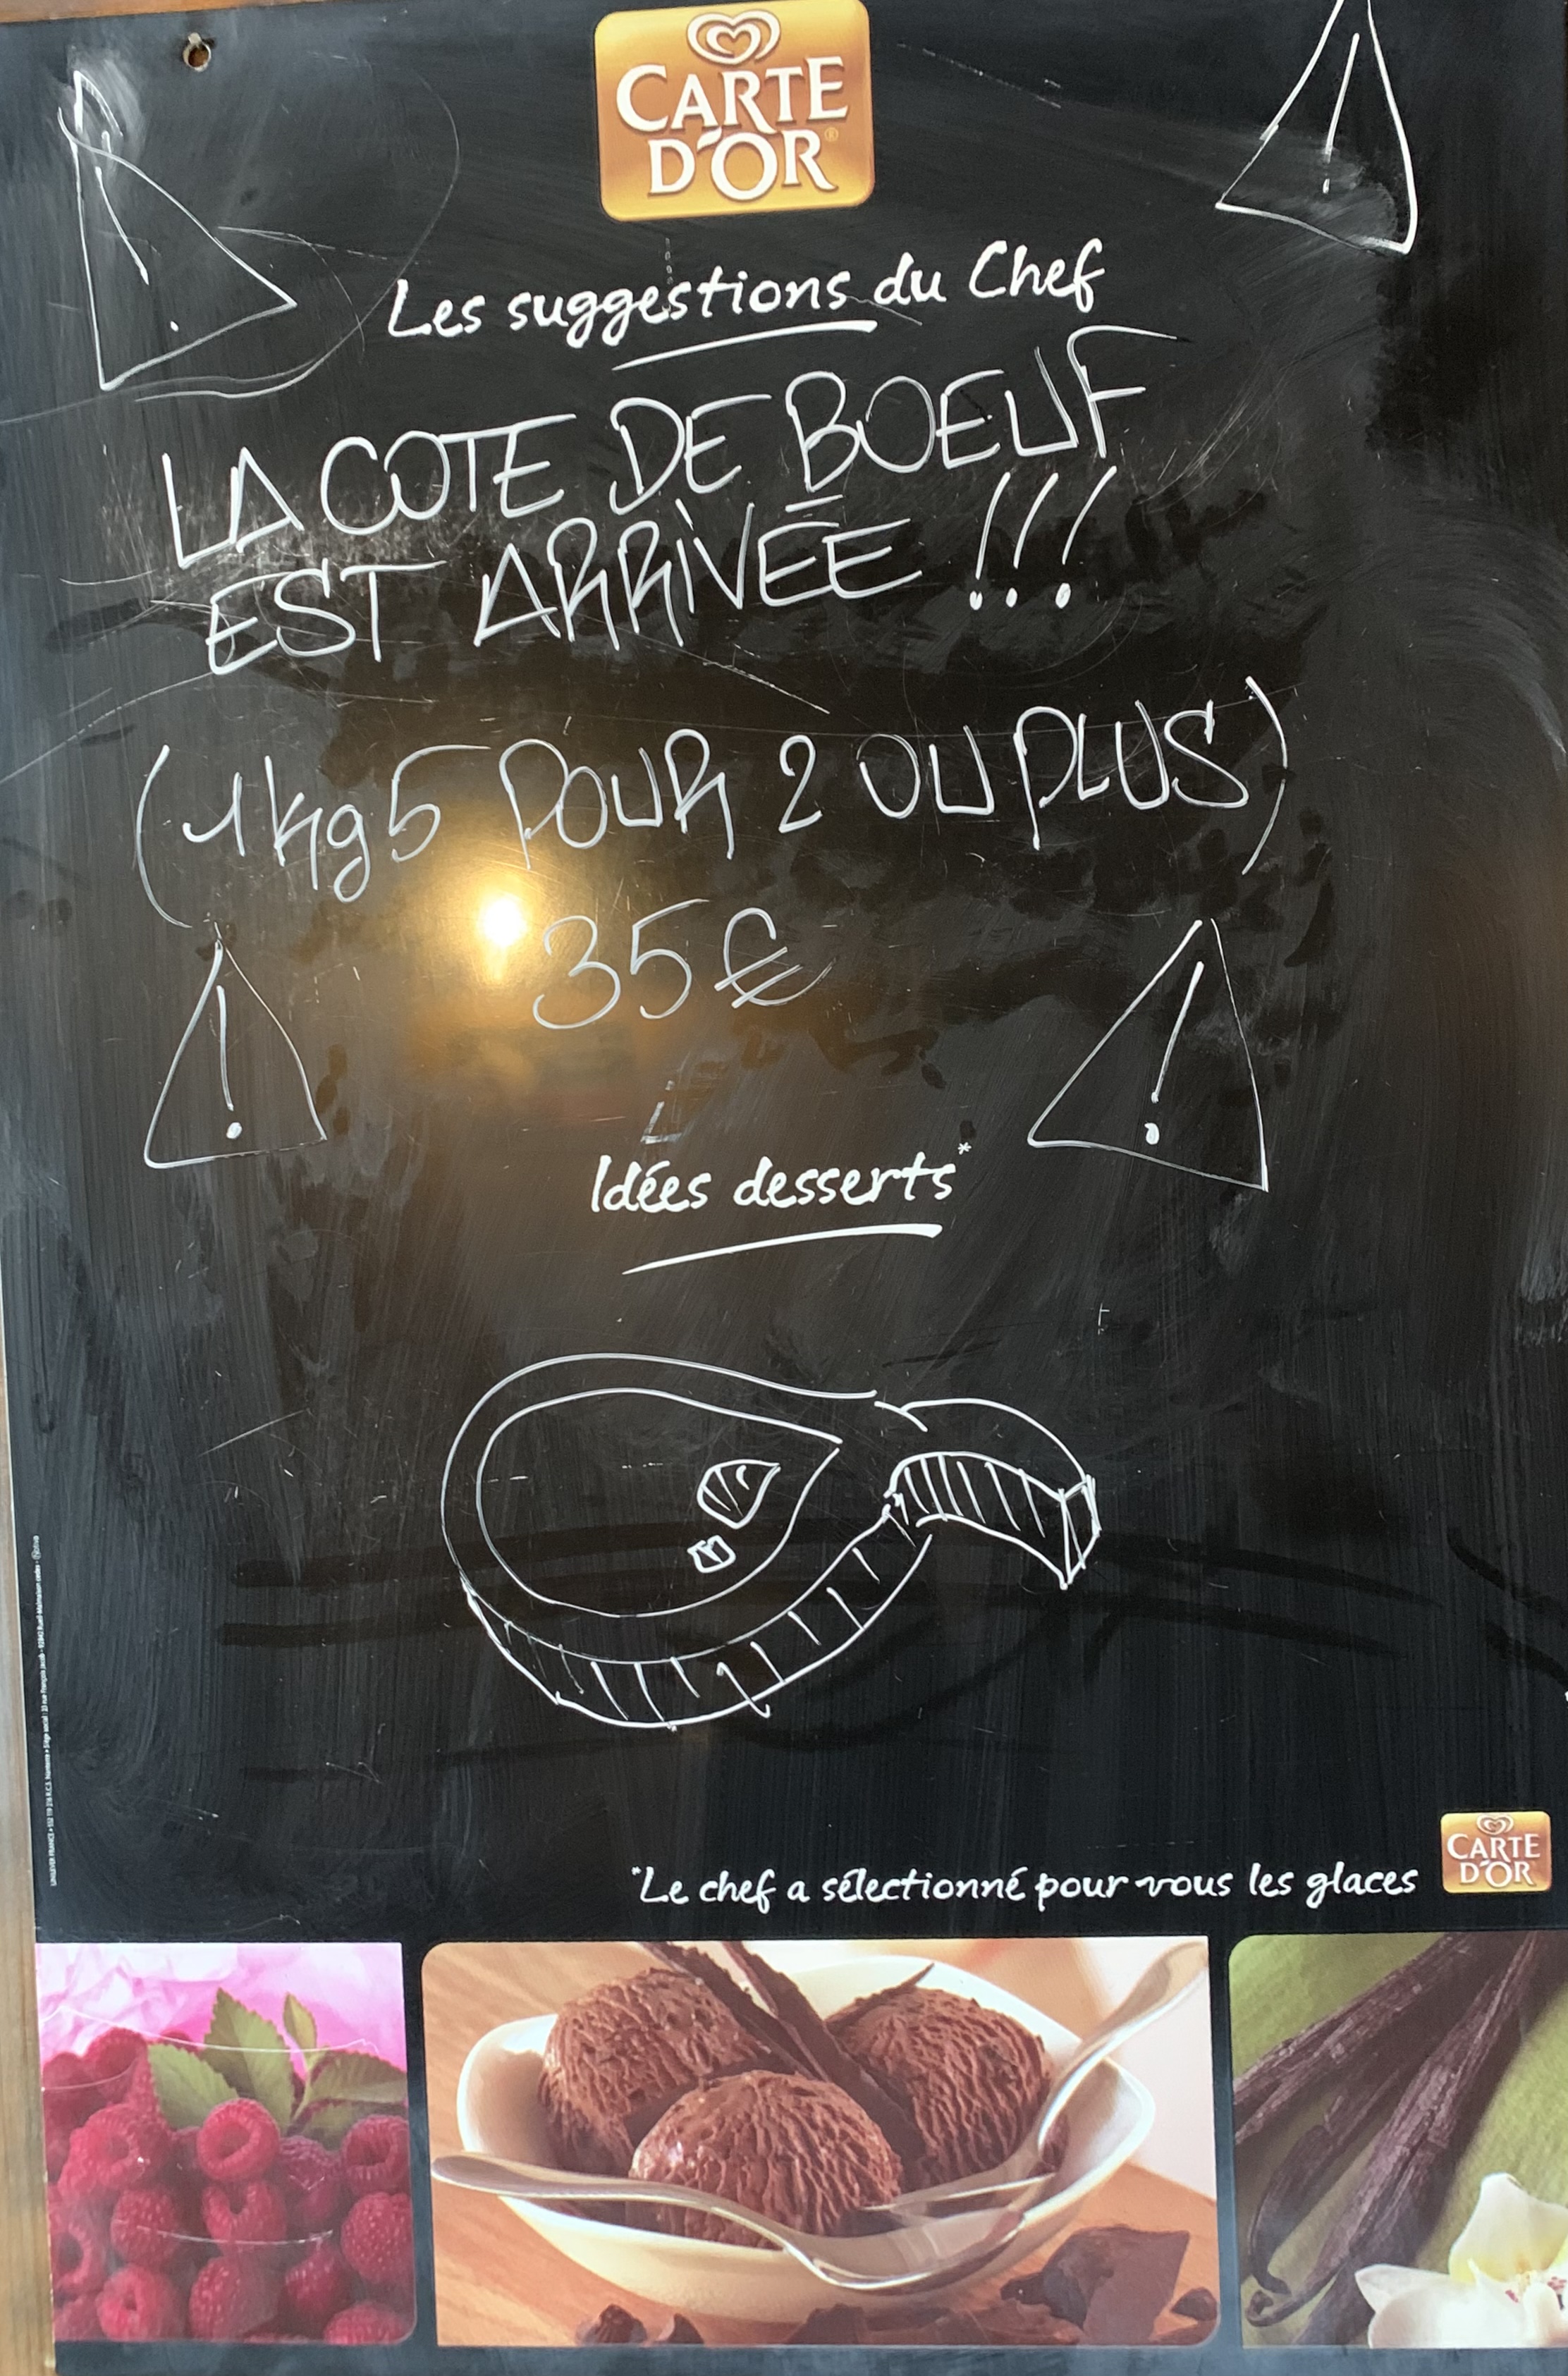 CARTE
D'OR®
Les suggestions du Chef
LA COTE DE BOEUF
EST ARRIVÉE !!!
(1kg5 POUR 2 OU PLUS)
35€
Idées desserts*
*Le chef a sélectionné pour vous les glaces
CARTE
D'OR